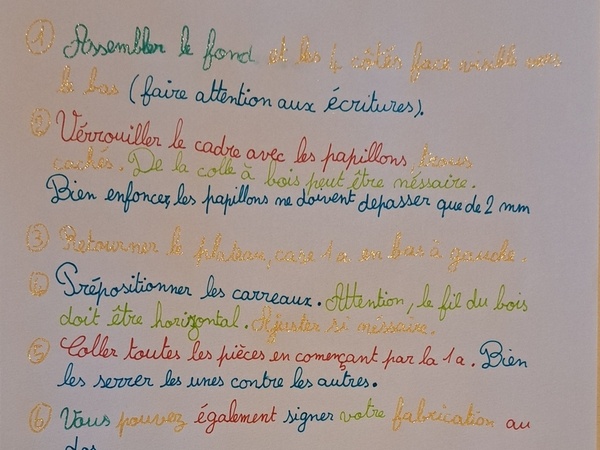 ① Assembler le fond et les 4 côtés face visible vers
le bas (faire attention aux écritures).
② Vérrouiller le cadre avec les papillons trous
cachés. De la colle à bois peut être néssaire.
Bien enfoncez, les papillons ne doivent depasser que de 2 mm
③ Retourner le plateau, case 1a en bas à gauche.
④ Prépositionner les carreaux. Attention, le fil du bois
doit être horizontal. Ajuster si néssaire.
⑤ Coller toutes les pièces en començant par la 1a. Bien
les serrer les unes contre les autres.
⑥ Vous pouvez également signer votre fabrication au
dos